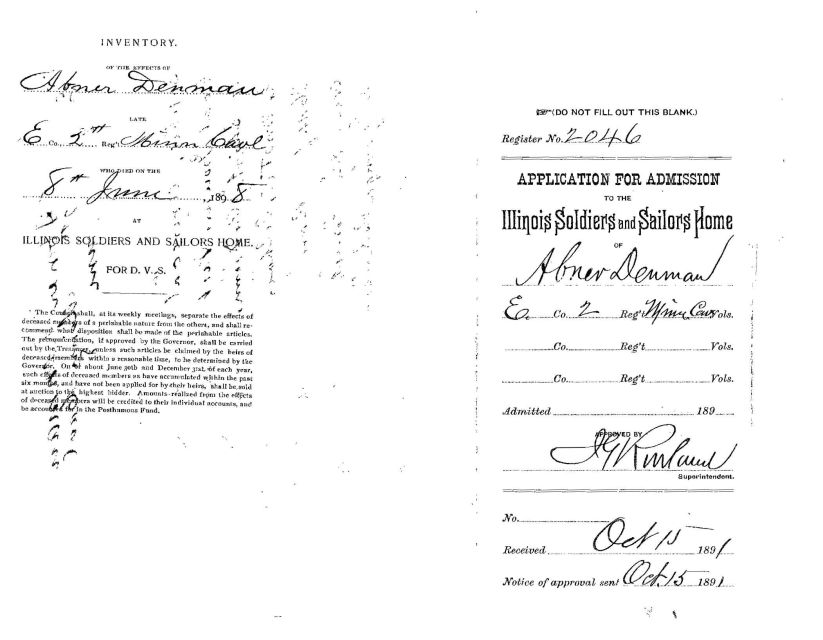 INVENTORY.
OF THE EFFECTS OF
Abner Denman
LATE
E Co. 2nd Reg't Minn Cavl
WHO DIED ON THE
8th June, 1898
AT
ILLINOIS SOLDIERS AND SAILORS HOME.
FOR D. V. S.
The Council shall, at its weekly meetings, separate the effects of
deceased members of a perishable nature from the others, and shall re-
commend what disposition shall be made of the perishable articles.
The recommendation, if approved by the Governor, shall be carried
out by the Treasurer, unless such articles be claimed by the heirs of
deceased members within a reasonable time, to be determined by the
Governor. On or about June 30th and December 31st, of each year,
such effects of deceased members as have accumulated within the past
six months, and have not been applied for by their heirs, shall be sold
at auction to the highest bidder. Amounts realized from the effects
of deceased members will be credited to their individual accounts, and
be accounted for in the Posthumous Fund.
(DO NOT FILL OUT THIS BLANK.)
Register No. 2046
APPLICATION FOR ADMISSION
TO THE
Illinois Soldiers and Sailors Home
OF
Abner Denman
E. Co. 2 Reg't Minn Cav Vols.
Co. Reg't Vols.
Co. Reg't Vols.
Admitted 189
APPROVED BY
Superintendent.
No.
Received Oct 15 1891
Notice of approval sent Oct. 15 1891